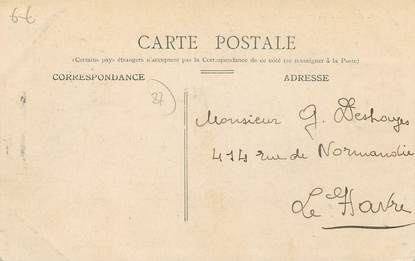 6€
CARTE POSTALE
(Certains pays étrangers n'acceptent pas la Correspondance de ce côté (se renseigner à la Poste)
CORRESPONDANCE
ADRESSE
37
Monsieur G. Deshayes
414 rue de Normandie
Le Havre